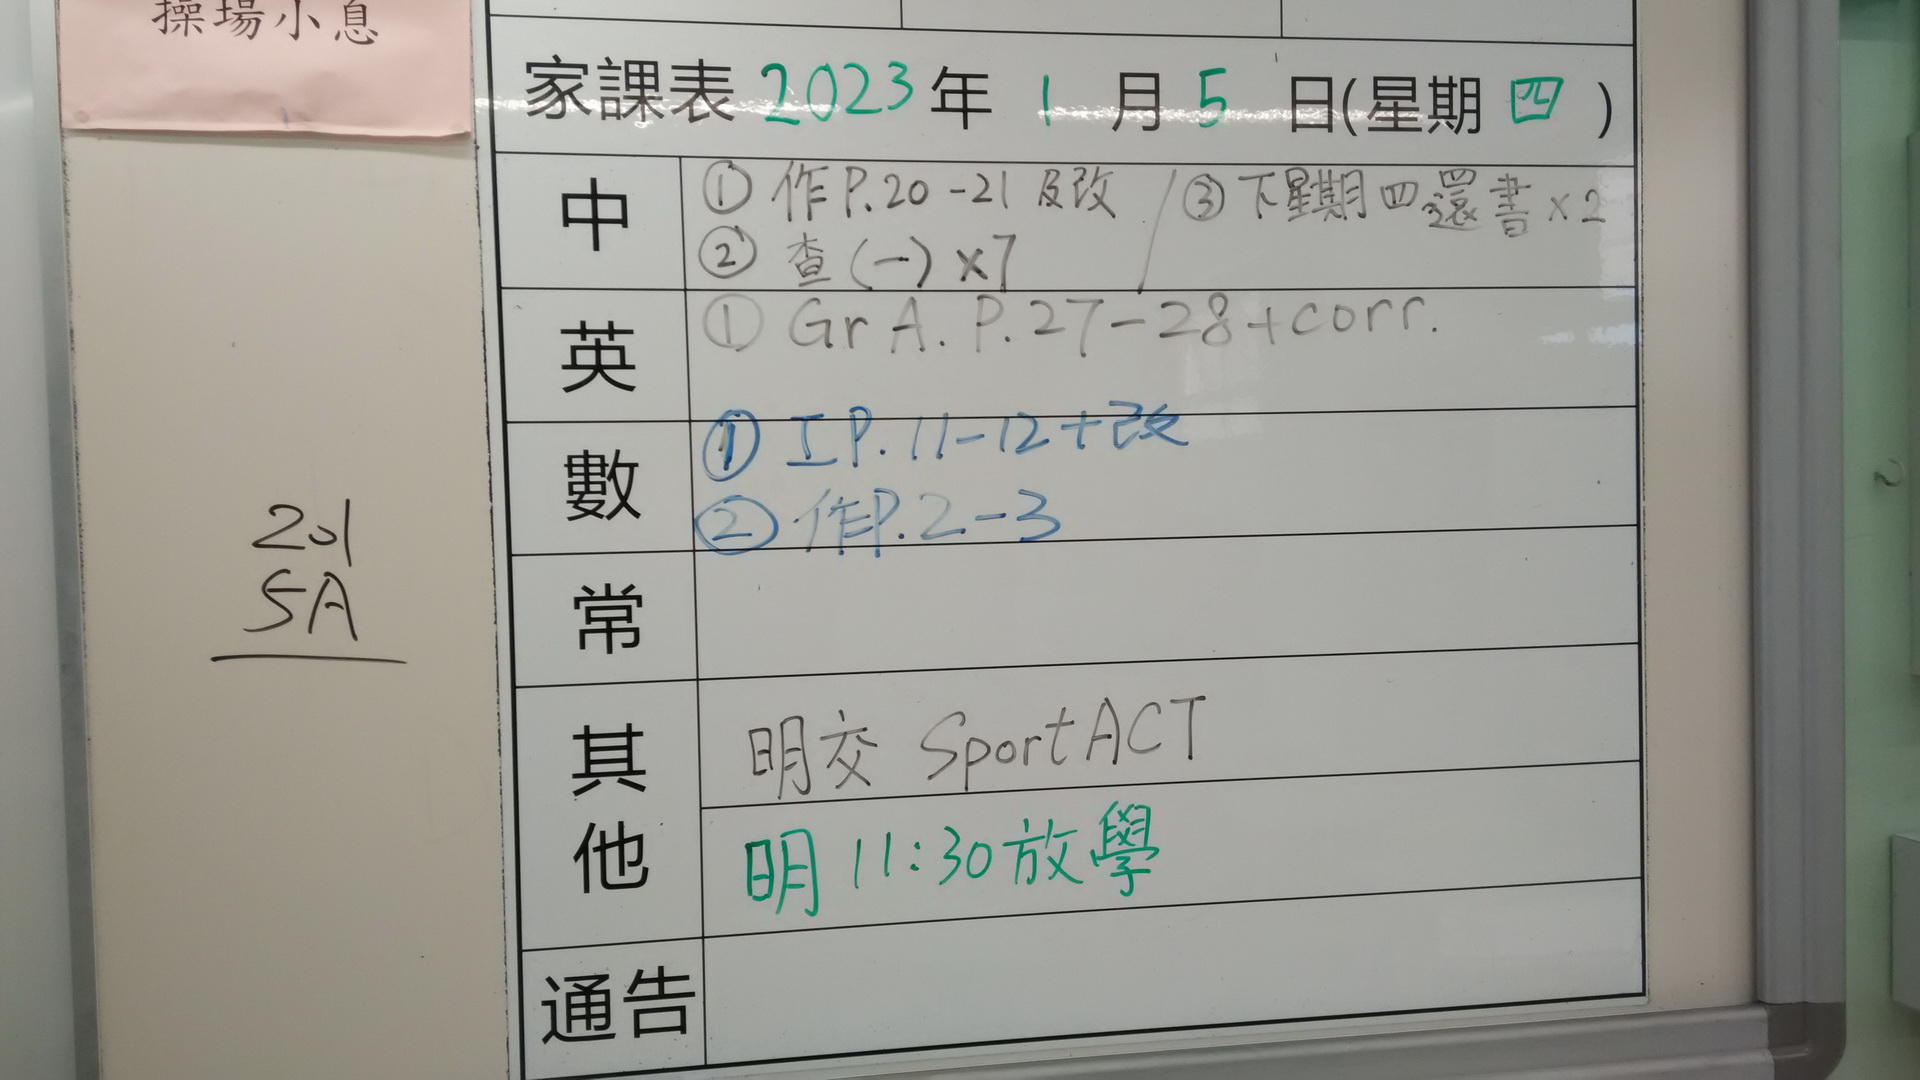 操場小息
家課表 2023 年 1 月 5 日(星期 四 )
中
① 作 P.20-21 及改 / ③ 下星期四還書 x2
② 查(一) x7
英
① Gr A. P.27-28+corr.
數
① 工 P.11-12+改
② 作P.2-3
常
其他
明交 SportACT
明 11:30 放學
通告
201
5A